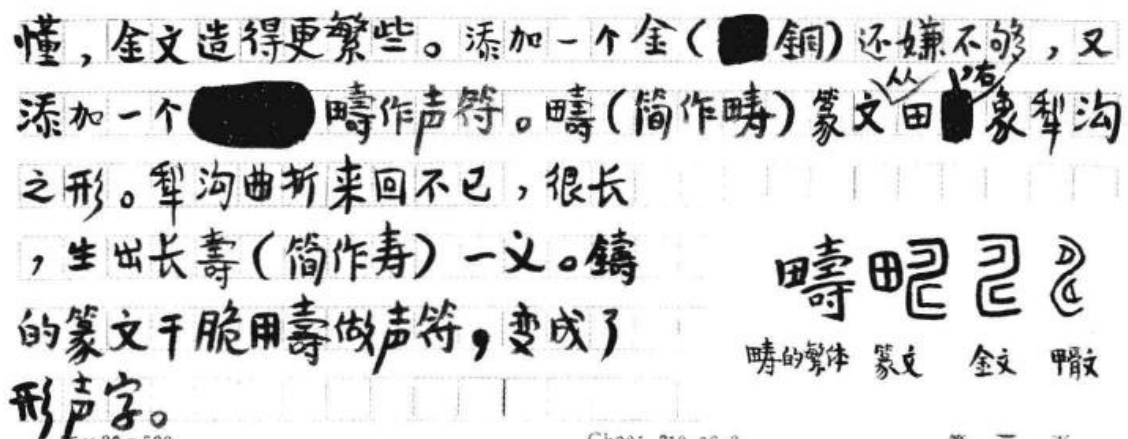 懂，金文造得更繁些。添加一个金（銅）还嫌不够，又
添加一个疇作声符。疇（简作畴）篆文从田，右象犁沟
之形。犁沟曲折来回不已，很长
，生出长壽（简作寿）一义。鑄
的篆文干脆用壽做声符，变成了
形声字。
疇
畴的繁体 篆文 金文 甲骨文